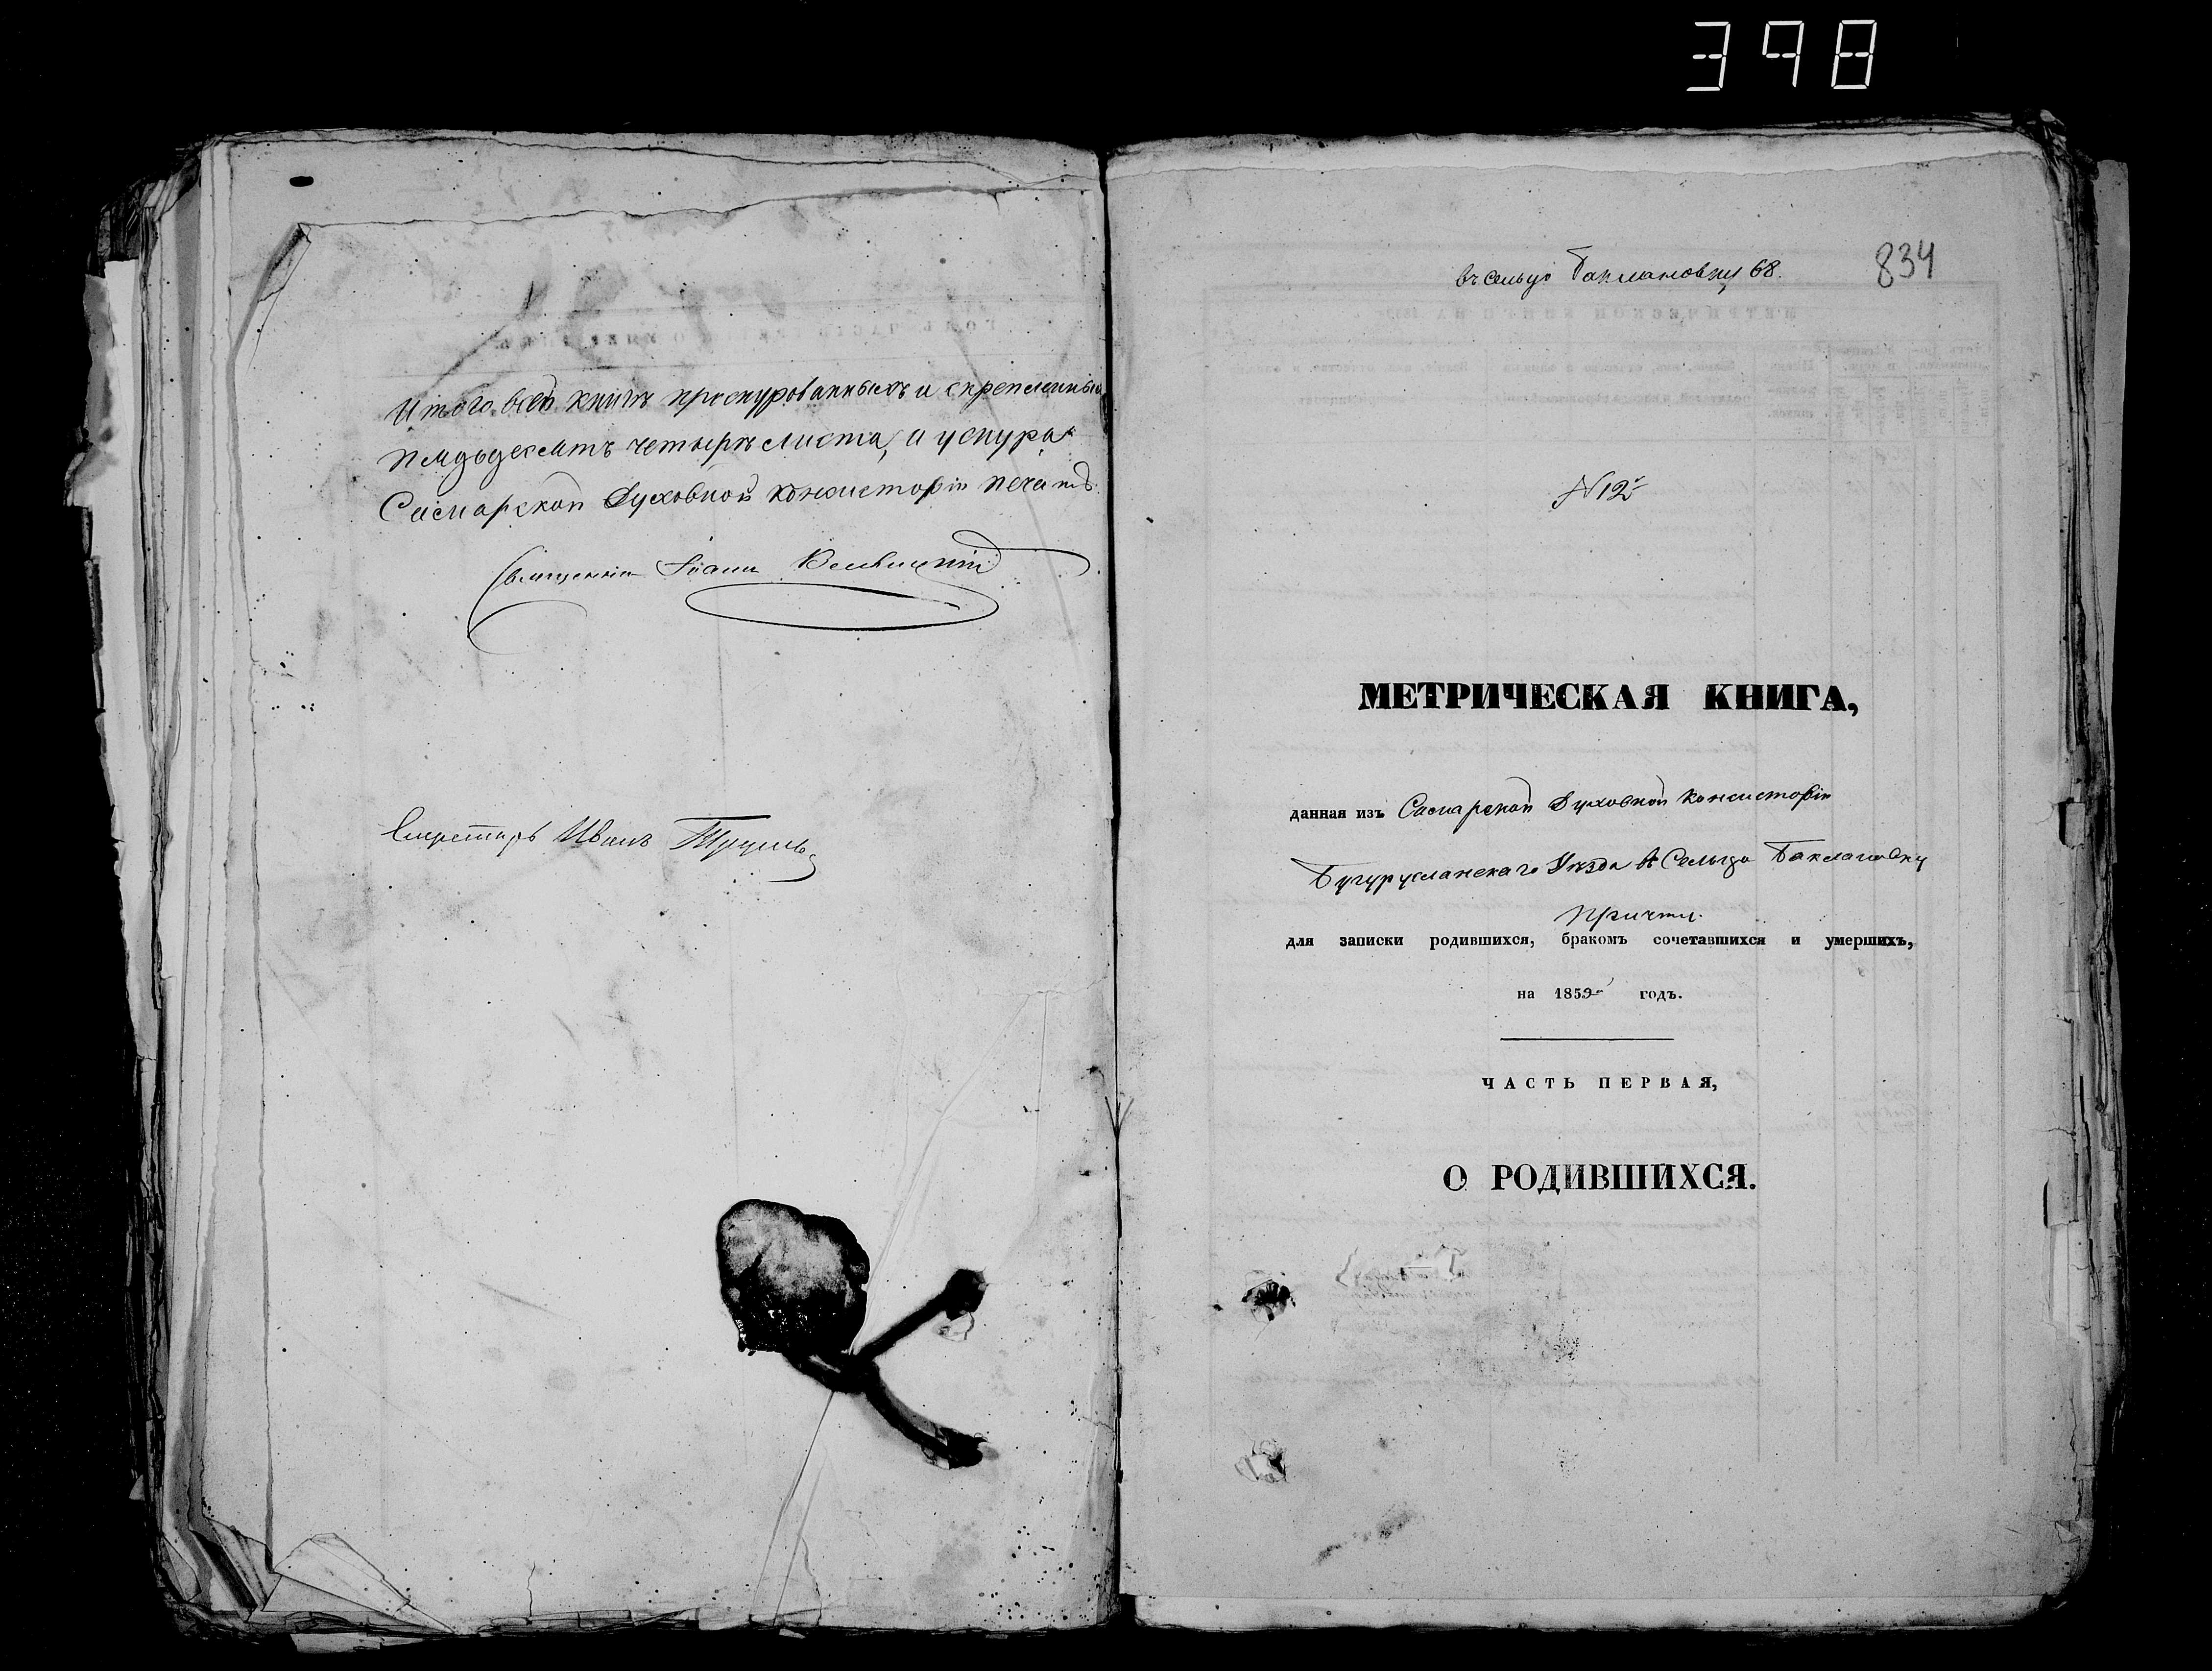 398
Итого въ сей книгѣ прошнурованныхъ и скрепленныхъ
пядьдесятъ четыре листа, и у шнура
Самарской Духовной Консисторіи печать.
Священникъ Іоаннъ
Секретарь Иванъ
въ сельцо Баклановку 68.
834
№ 12й
МЕТРИЧЕСКАЯ КНИГА,
данная изъ Самарской Духовной Консисторіи
Бугурусланскаго Уѣзда въ Сельцо Баклановку
причту.
для записки родившихся, бракомъ сочетавшихся и умершихъ,
на 1859 годъ.
ЧАСТЬ ПЕРВАЯ,
О РОДИВШИХСЯ.